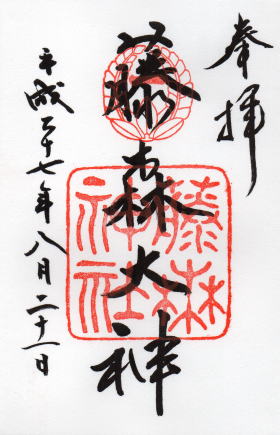 奉拝
藤森大神
藤森
神社
平成二十七年八月二十一日